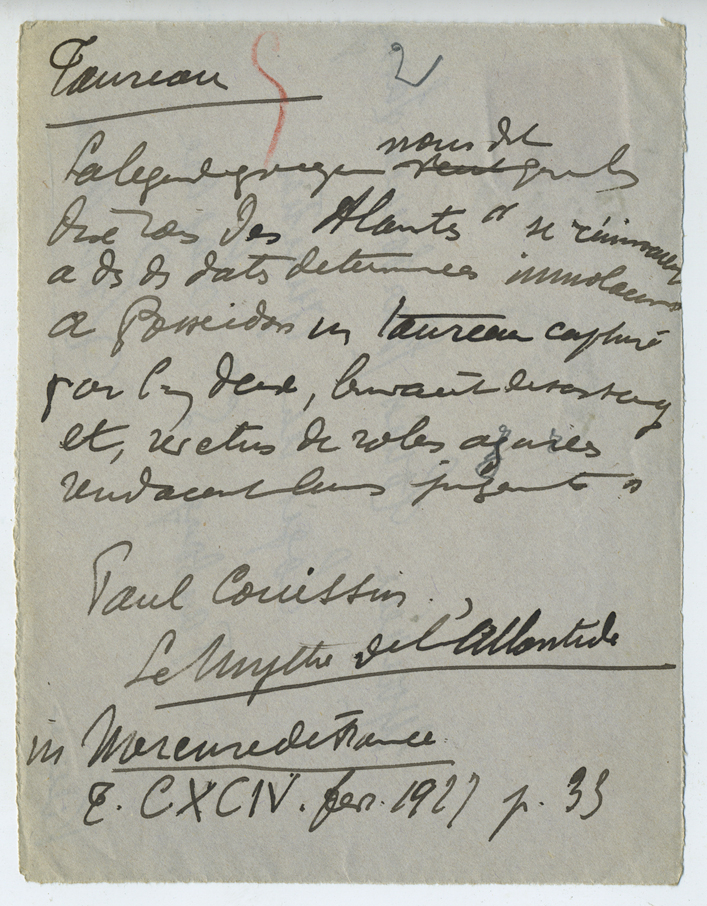 Taureau
2
La legende grecque nous dit que les
dix rois des Atlantes " se réunissaient
a des dates determinees immolaient
a Poseidon un taureau capturé
par l'un d'eux, buvaient de son sang
et, revetus de robes azurées
rendaient leurs jugements "
Paul Couissin.
Le Mythe de l'Atlantide
in Mercure de France
T. CXCIV. fev. 1927 p. 33